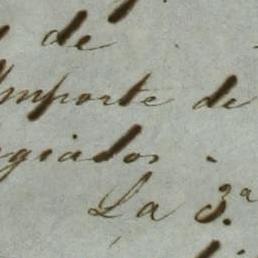 de
Importe de
giados.
La 3.ª